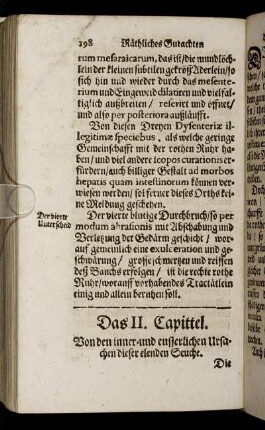 298 Räthliches Gutachten
rum mesaraicarum, das ist / die mundlöch-
lein der kleinen subtilen gekröß Aderlein / so
sich hin und wieder durch das mesente-
rium und Eingeweid dilatiren und vielfal-
tiglich außbreiten / reserirt und eröffnet /
und also per posteriora außläufft.
Von diesen Dreyen Dysenteriæ il-
legitimæ speciebus, als welche geringe
Gemeinschafft mit der rothen Ruhr ha-
ben / und viel andere scopos curationis er-
fürdern / auch billiger Gestalt ad morbos
hepatis quam intestinorum können ver-
wiesen werden / sol ferner dieses Orths kei-
ne Meldung geschehen.
Der vierte
Unterscheid
Der vierte blutige Durchbruch / so per
modum abrasionis mit Abschabung und
Verletzung der Gedärm geschicht / wor-
auf gemeinlich eine exulceration und ge-
schwärung / grosse schmertzen und reissen
deß Bauchs erfolgen / ist die rechte rothe
Ruhr / worauff vorhabendes Tractätlein
einig und allein beruhen soll.
Das II. Capittel.
Von den inner- und eusserlichen Ursa-
chen dieser elenden Seuche.
Die